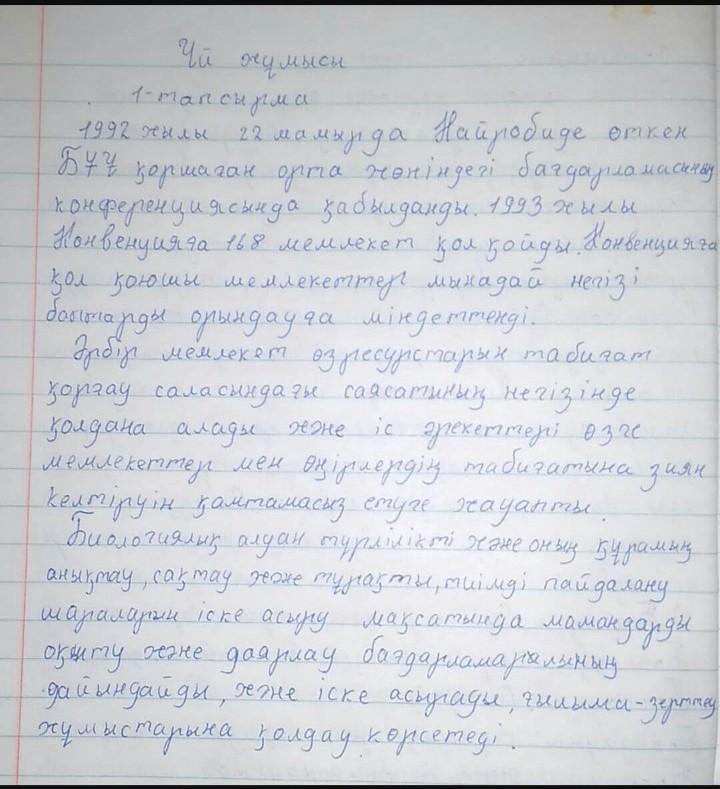 Үй жұмысы
1-тапсырма
1992 жылы 22 мамырда Найробиде өткен
БҰҰ қоршаған орта жөніндегі бағдарламасының
конференциясында қабылданды. 1993 жылы
Конвенцияға 168 мемлекет қол қойды. Конвенцияға
қол қоюшы мемлекеттер мынадай негізі
бағытарды орындауда міндеттенді.
Әрбір мемлекет өз ресурстарын табиғат
қорғау саласындағы саясатының негізінде
қолдана алады және іс әрекеттері өзге
мемлекеттер мен өңірлердің табиғатына зиян
келтіруін қамтамасыз етуге жауапты.
Биологиялық алдан түрлілікті және оның құрамың
анықтау, сақтау және тұрақты, тиімді пайдалану
шараларын іске асыру мақсатында мамандарды
оқыту және даярлау бағдарламаралының
дайындайды, және іске асырады, ғылыма-зерттеу
жұмыстарына қолдау көрсетеді.